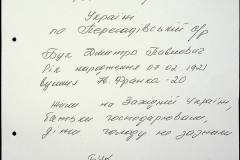 Україні
по Пересадівській с/р
Бук Дмитро Павлович
Рік народження 07.02.1921
вулиця Ів. Франка - 20
Жили на Західній Україні,
батьки господарювали,
діти голоду не зазнали